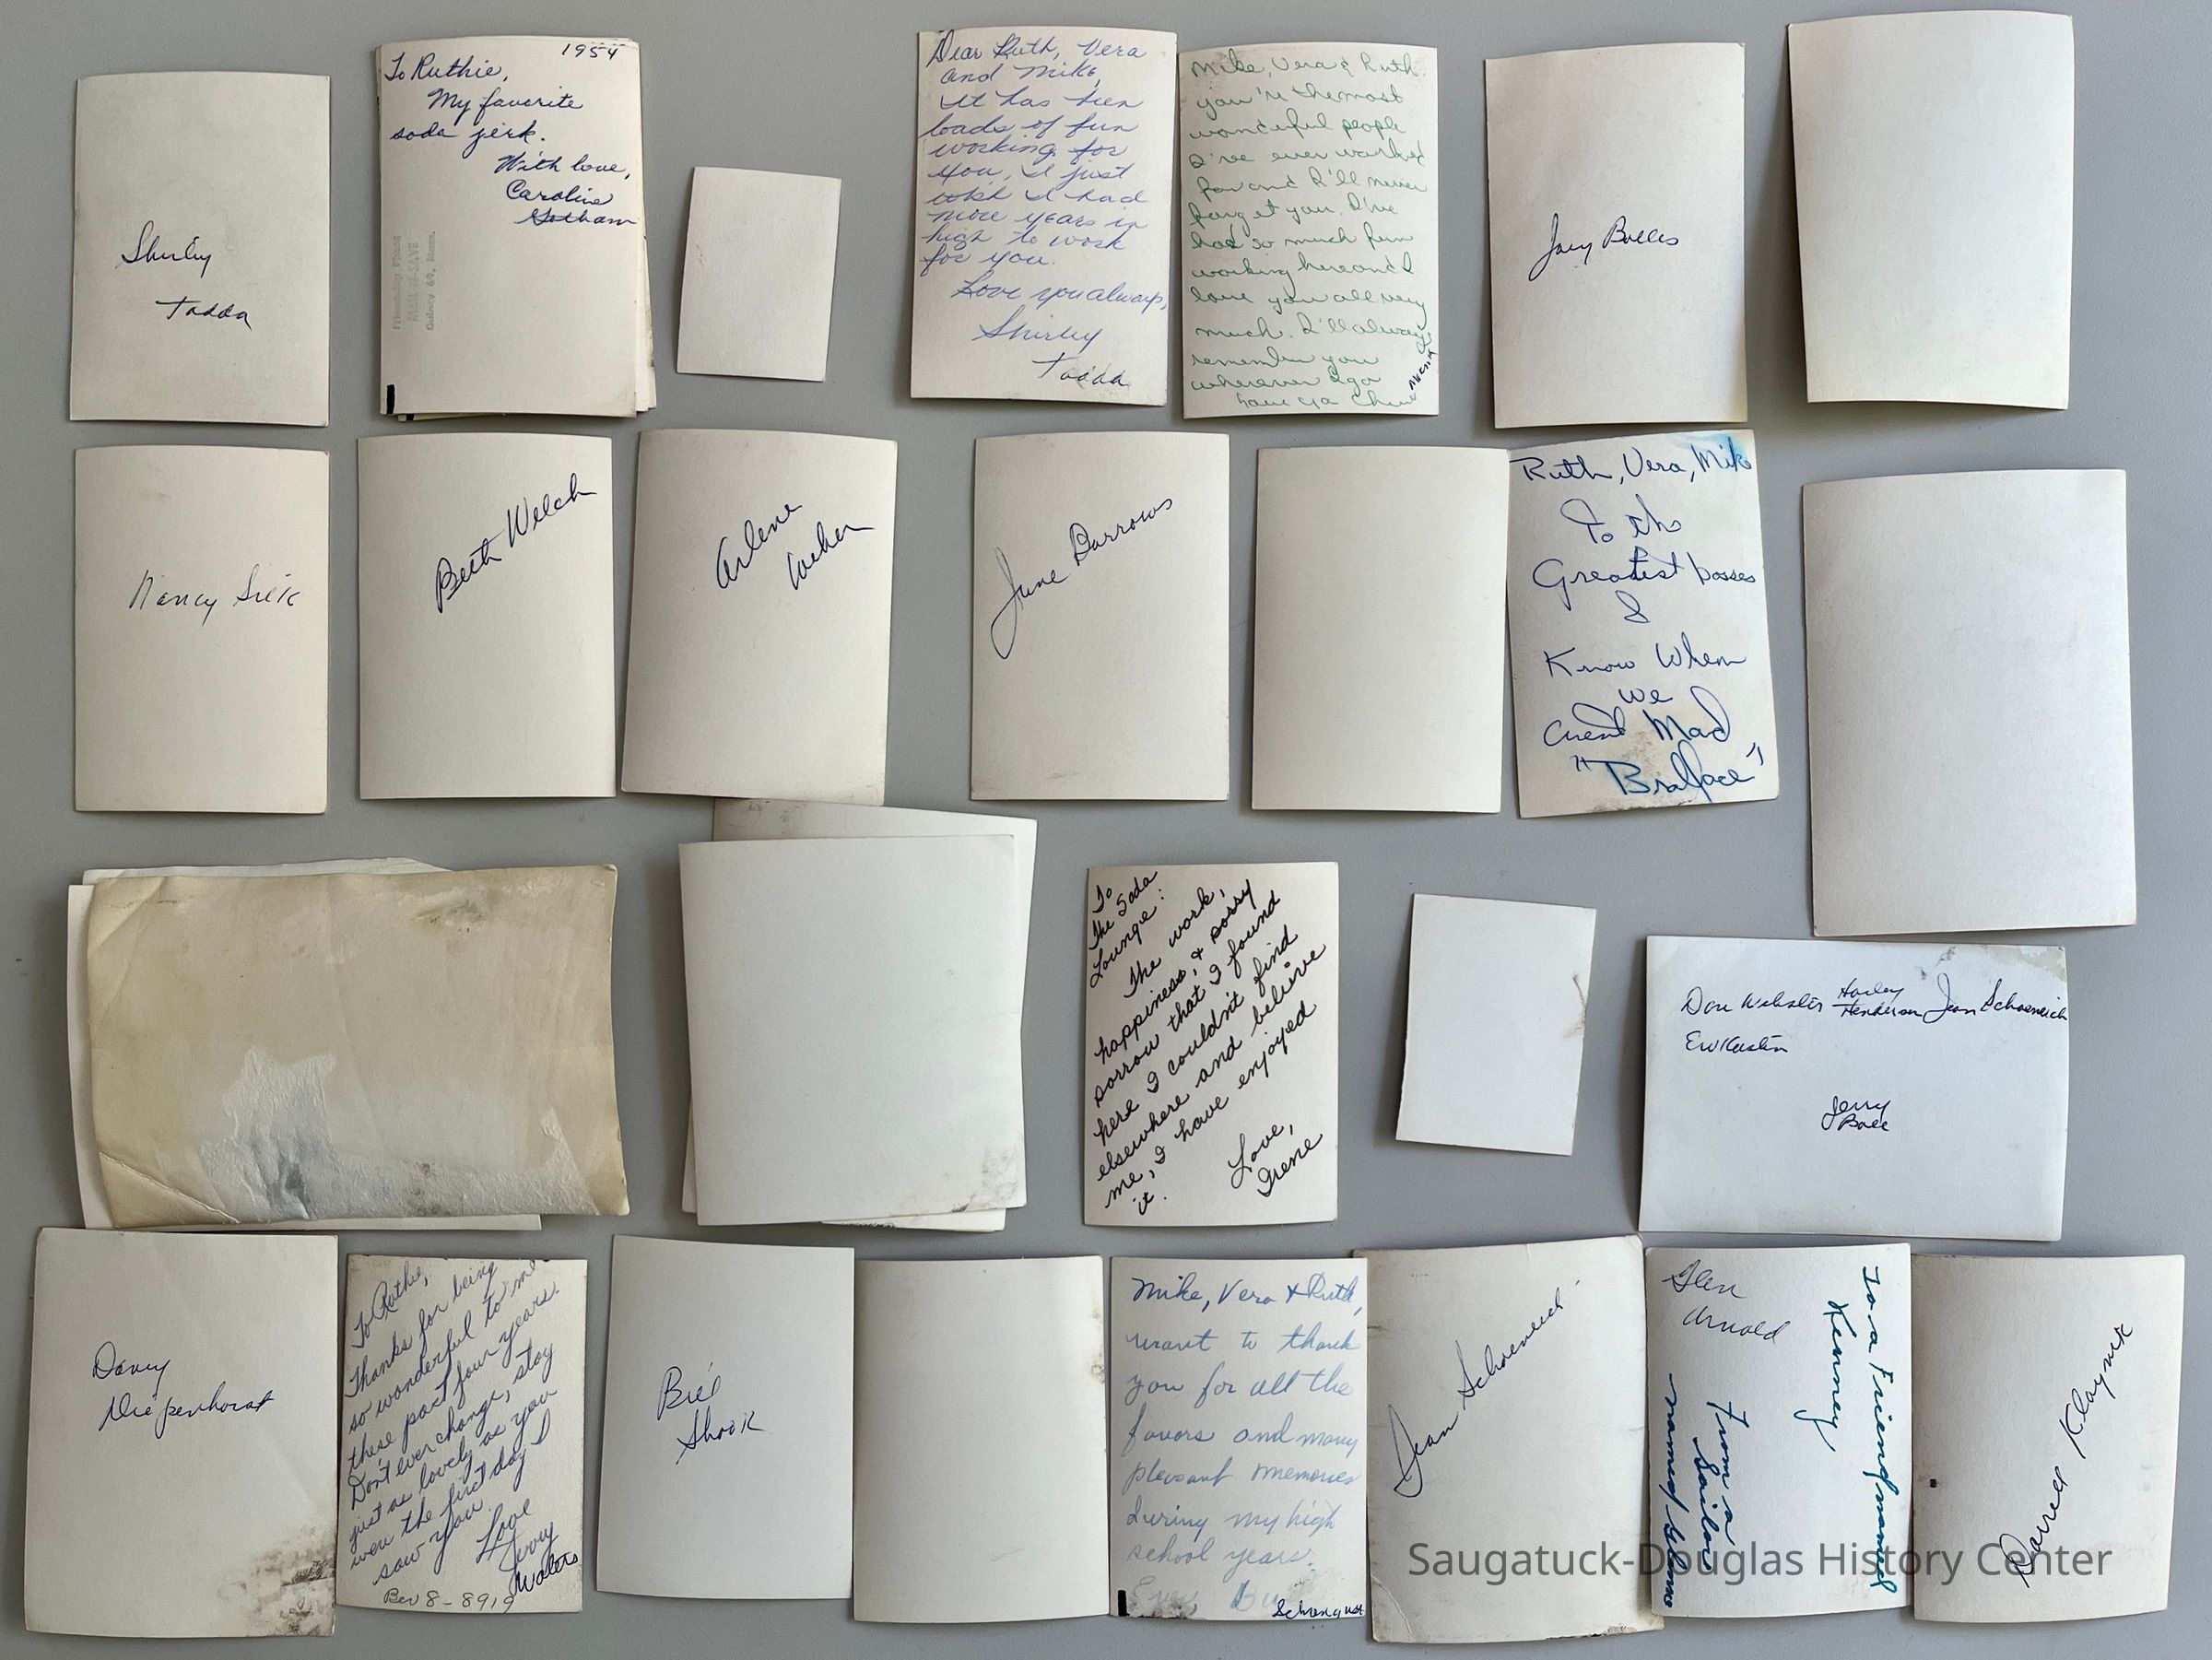 Shirley
Todda
1954
To Ruthie,
My favorite
soda jerk.
With love,
Caroline
Gotham
Dear Ruth, Vera
and Mike,
It has been
loads of fun
working for
you, I just
wish I had
more years in
high to work
for you.
Love you always,
Shirley
Todda
Mike, Vera & Ruth.
you're the most
wonderful people
I've ever worked
for and I'll never
forget you. I've
had so much fun
working here and I
love you all very
much. I'll always
remember you
wherever I go
Nancy
Beth Welch
Arlene
Weber
June Barrows
Ruth, Vera, Mike
To the
Greatest bosses
I
Know When
we
arent Mad
To
The Soda
Lounge:
The work,
happiness, & sorry
sorrow that I found
here I couldn't find
elsewhere and believe
me, I have enjoyed
it.
Love,
Irene
Don Webster Harley Henderson Jean Schoeneich
Jerry
Ball
To Ruthie,
Thanks for being
so wonderful to me
these past four years.
Don't ever change, stay
just as lovely as you
were the first day I
saw you.
Love
Jerry
Waters
8-8919
Bill
Shook
Mike, Vera & Ruth,
want to thank
you for all the
favors and many
pleasant memories
during my high
school years.
Jean Schoeneich
Glen
Arnold
To a Friend named
Kenney
From a
Sailor
named
Saugatuck-Douglas History Center